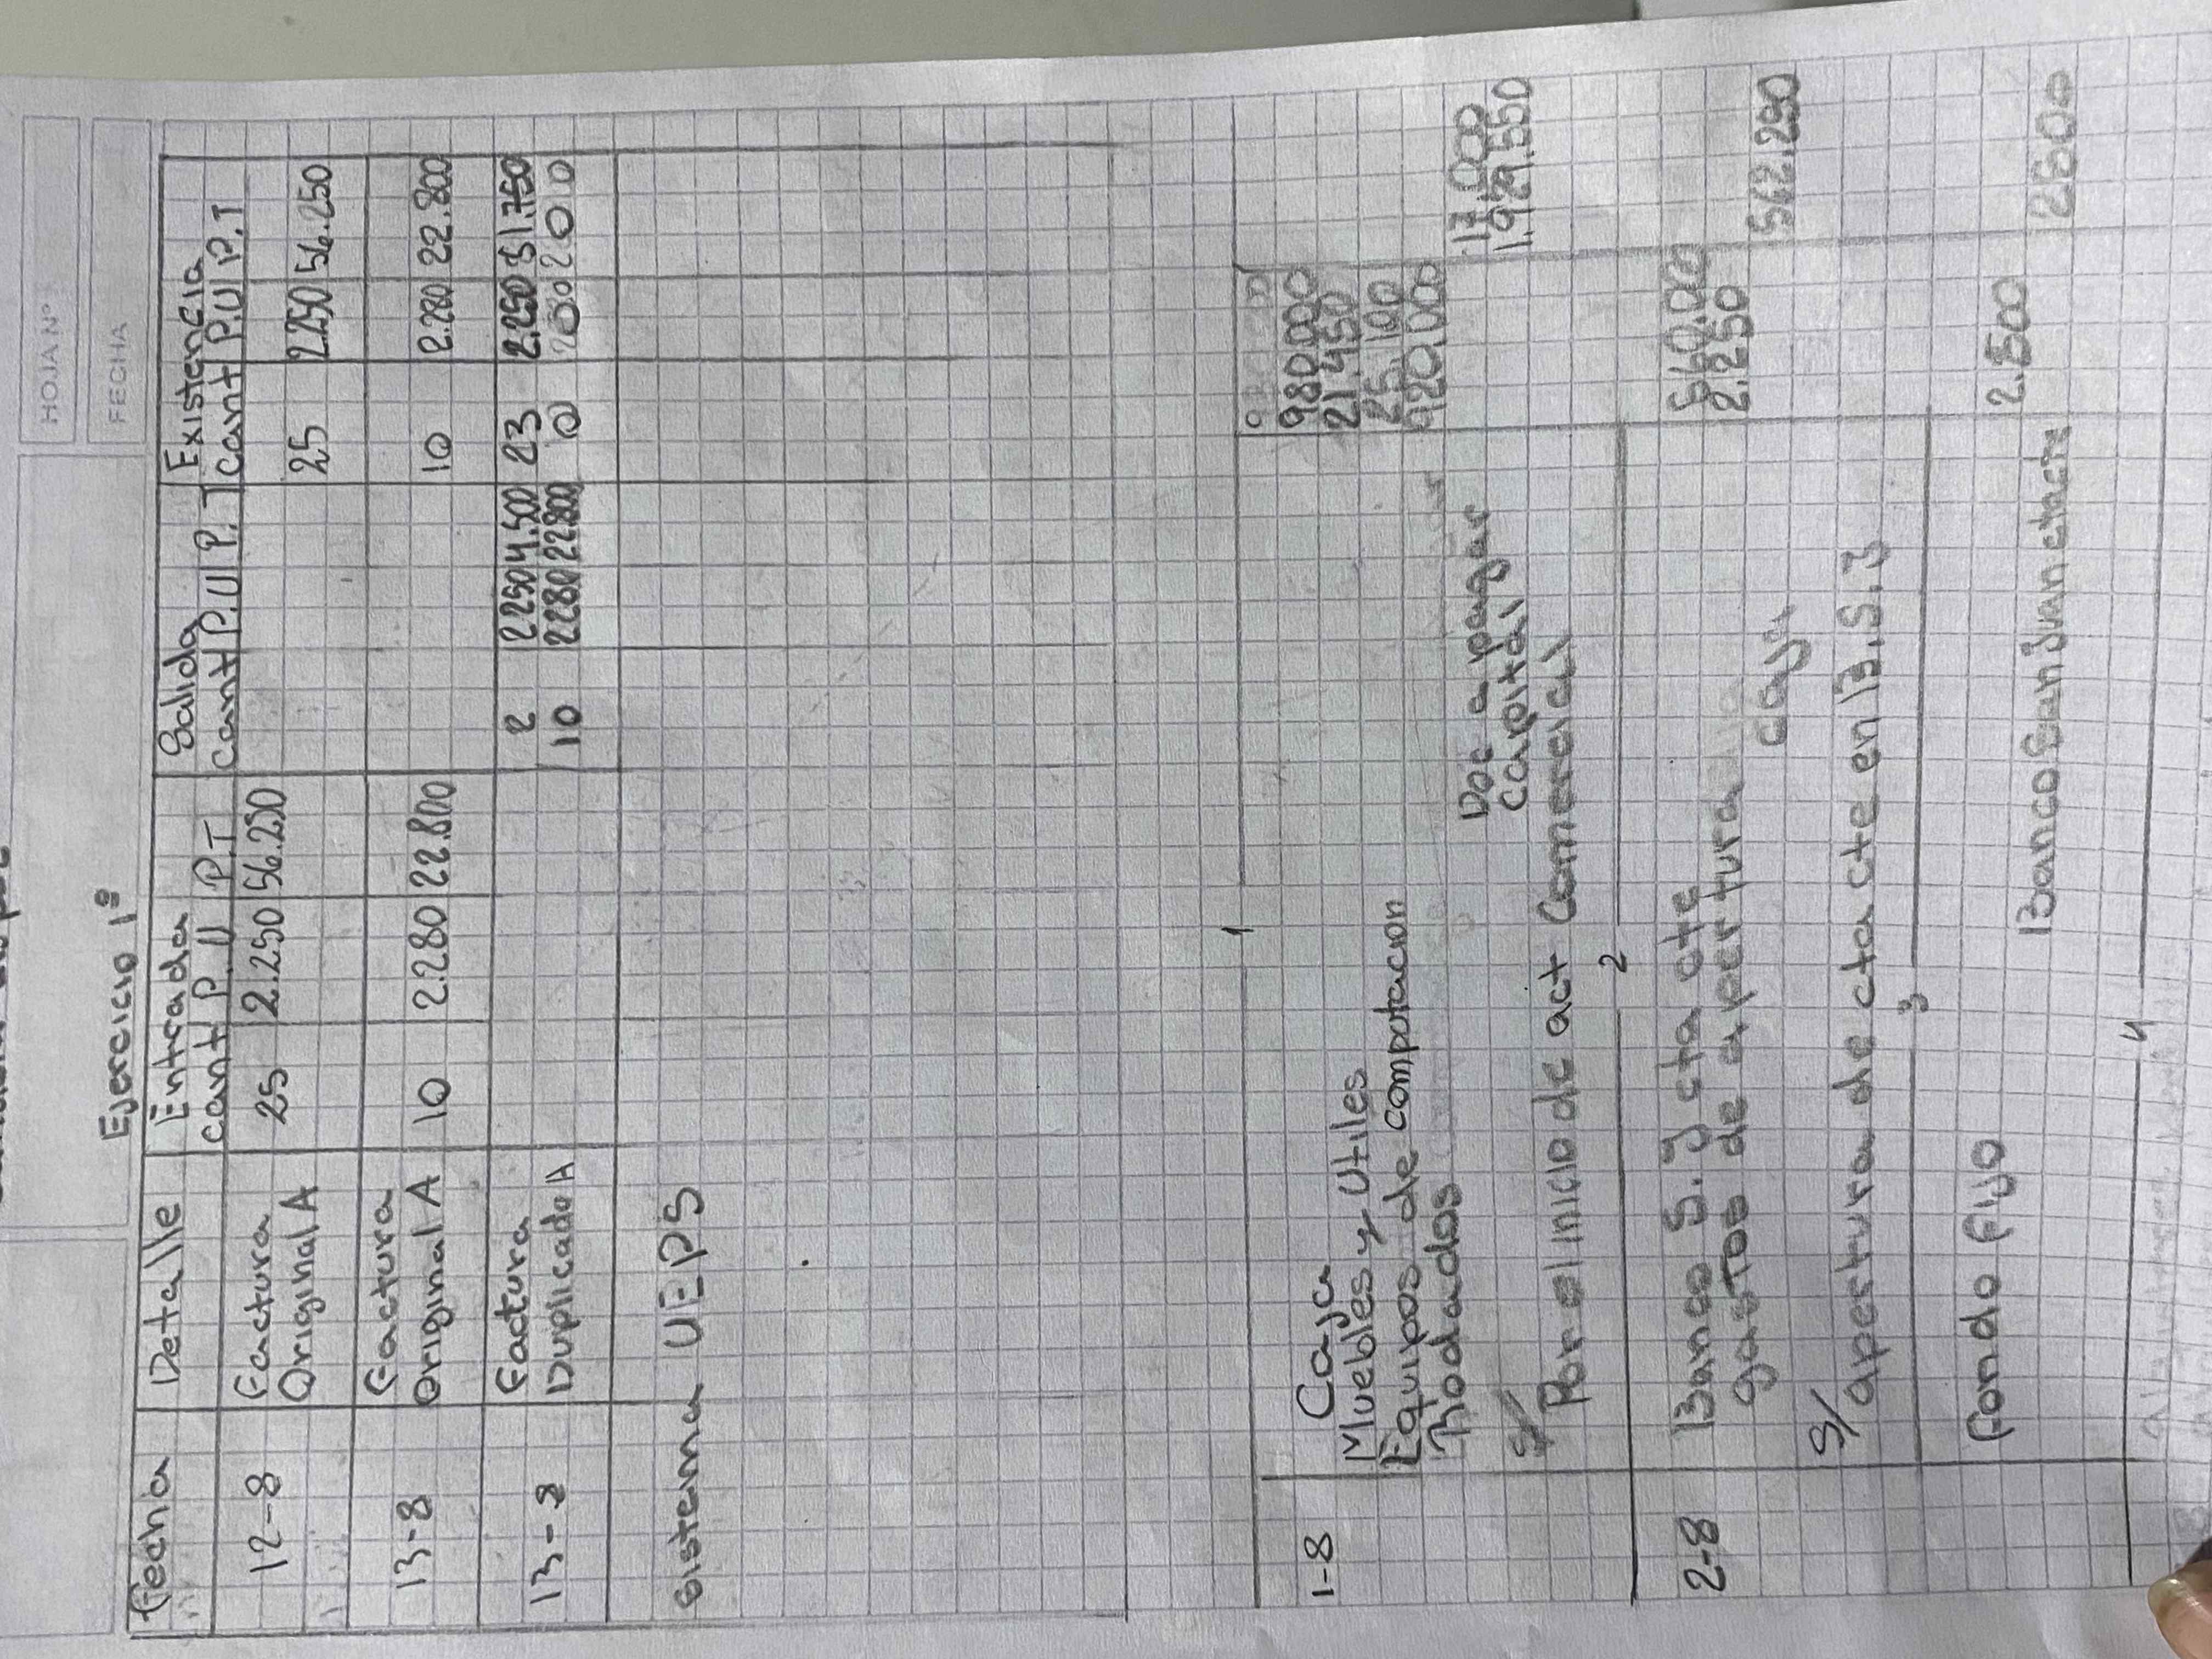 HOJA Nº
FECHA
Ejercicio 1º
Fecha Detalle Entrada Salida Existencia
Cant P.U P.T Cant P.U P.T Cant P.U P.T
12-8 Factura 25 2.250 56.250 25 2.250 56.250
Original A
13-8 Factura 10 2.280 22.800 10 2.280 22.800
Original A
13-8 Factura 2 2250 4.500 23 2.250 51.750
Duplicado A 10 2280 22800 0
sistema UEPS
1
1-8 Caja 980.000
Muebles y Utiles 21.450
Equipos de computacion 25.100
Rodados 920.000
Doc a pagar 17.000
Capital 1.929.550
S/ Por el inicio de act Comercial
2
2-8 Banco S.J cta cte 560.000
gastos de apertura 2.250
caja 562.250
S/ apertura de cta cte en B.S.J
3
fondo fijo 2.500
Banco San Juan cta cte 2500
4